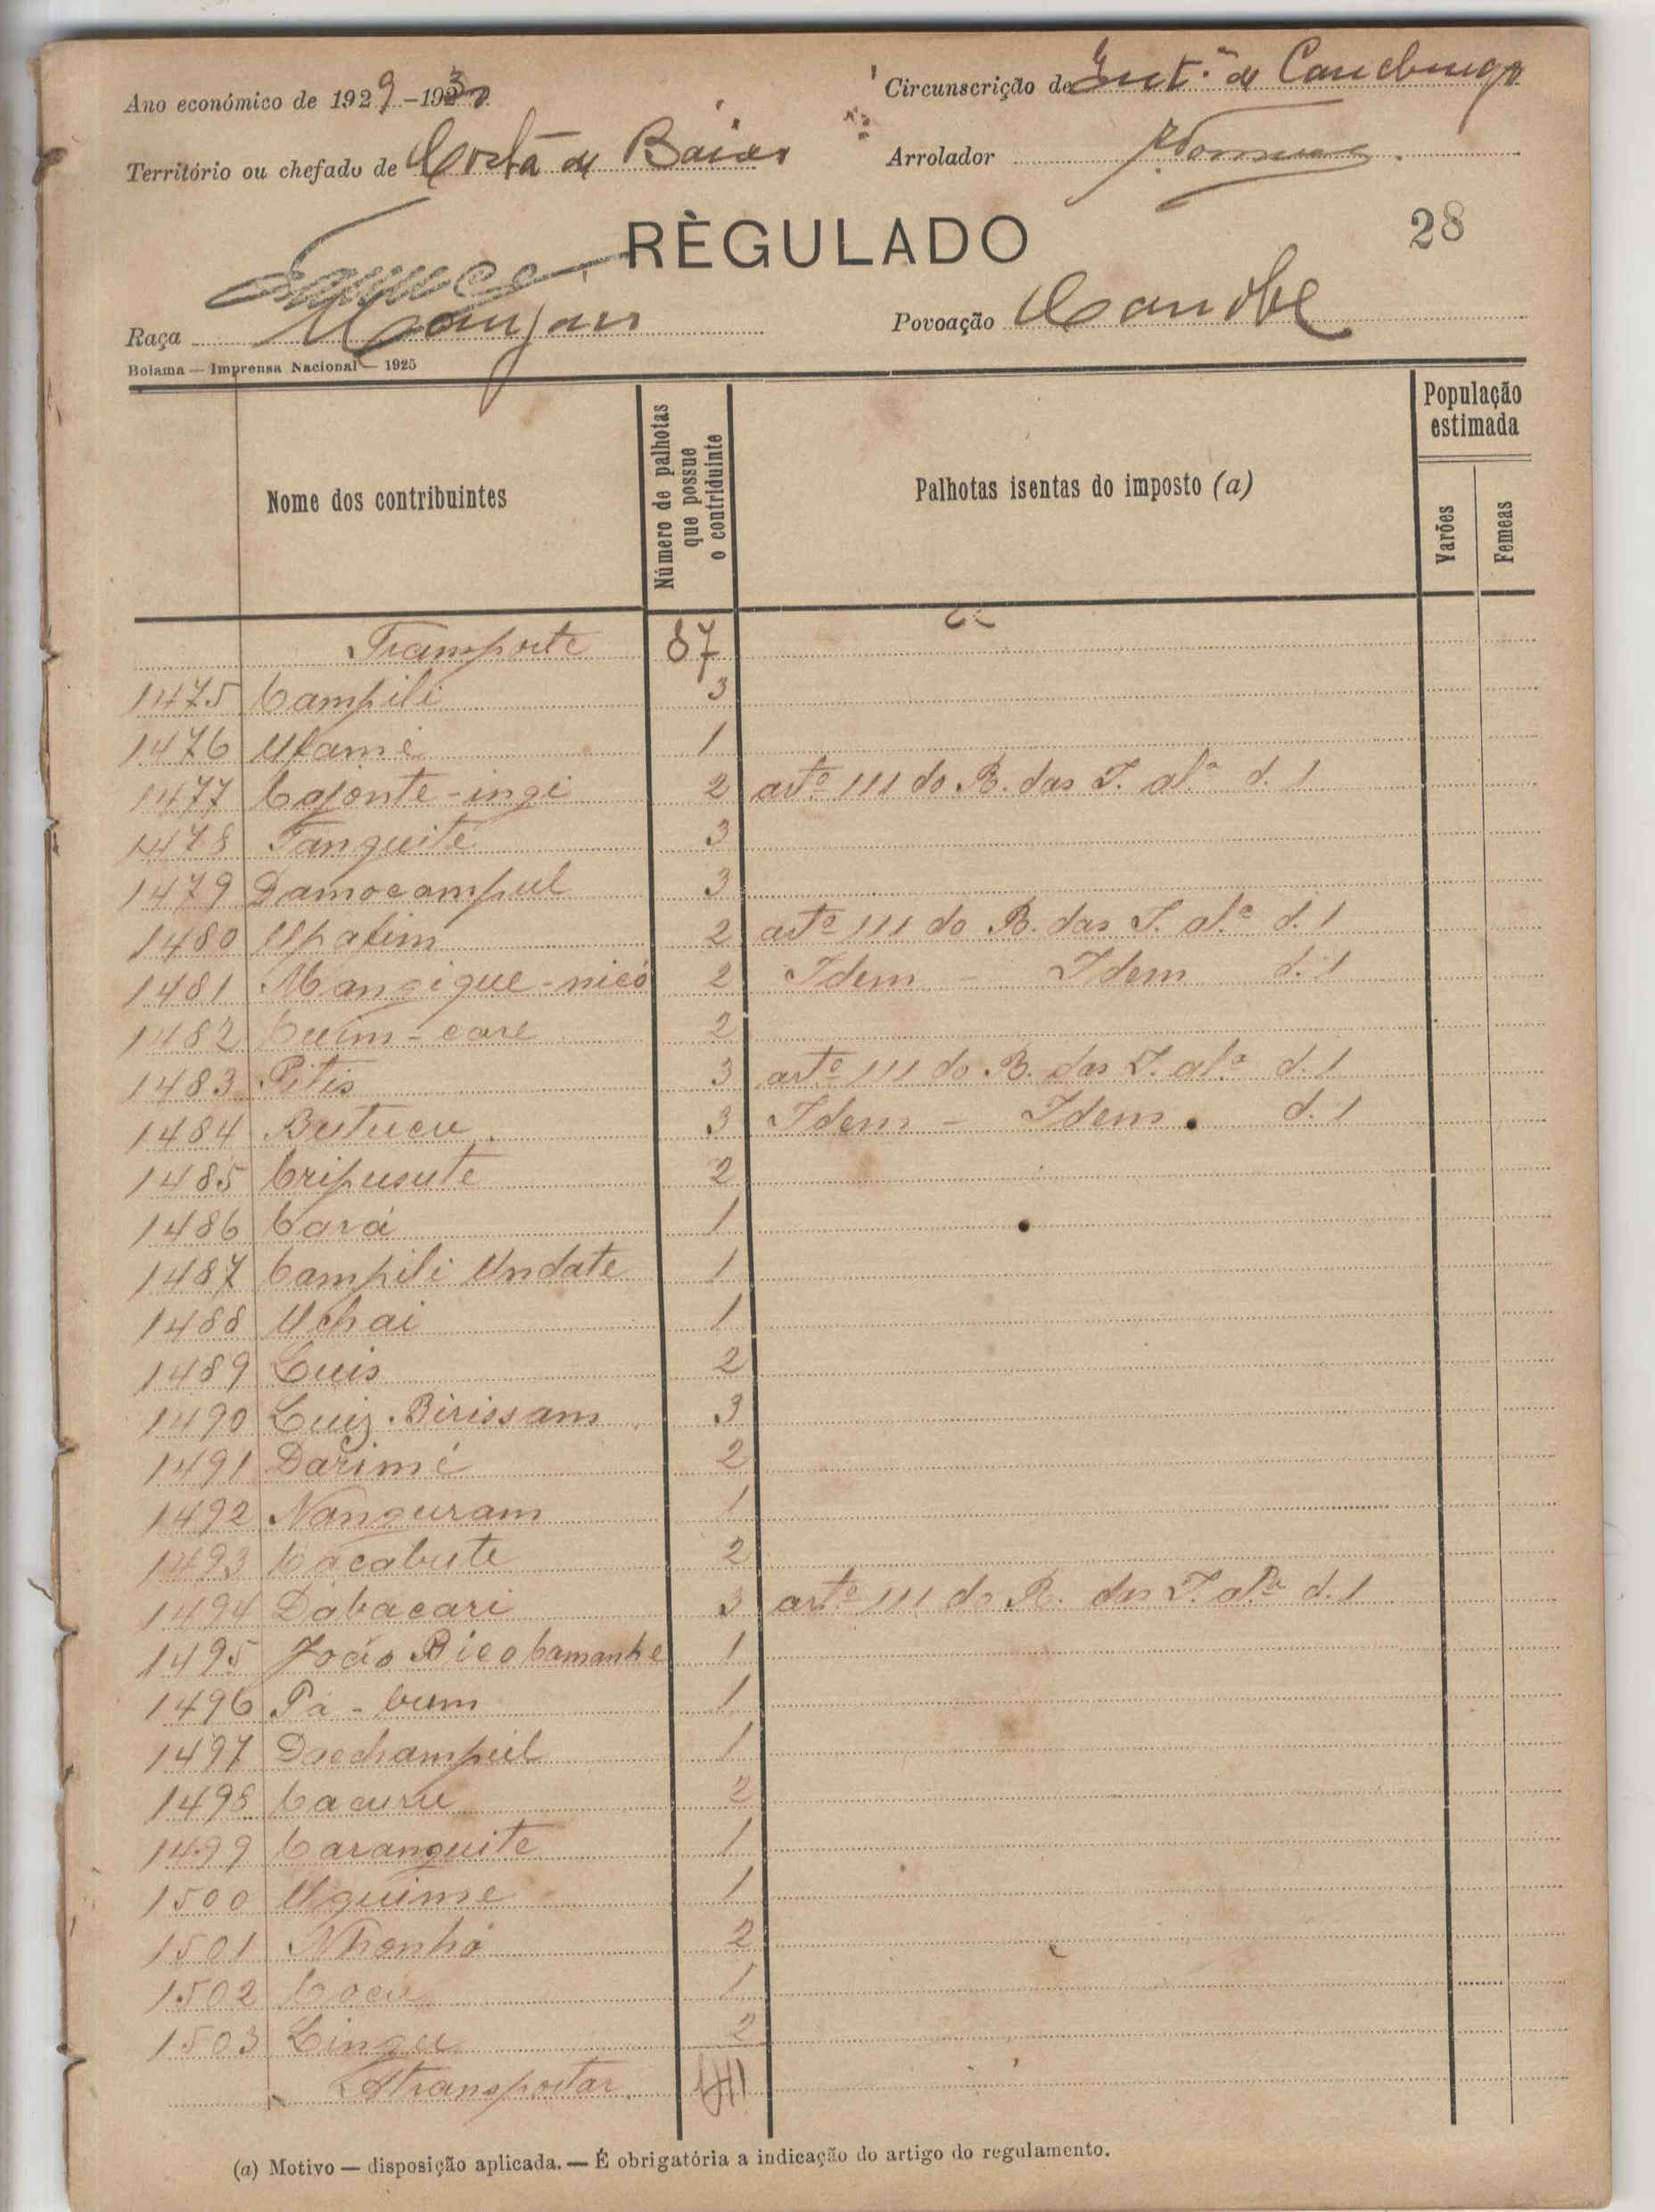 Ano económico de 1929-1930
Circunscrição de Int.ª de Canchungo
Território ou chefado de Costa de Baixo
Arrolador
RÈGULADO
28
Raça Manjaw
Povoação Canobe
Bolama — Imprensa Nacional — 1925
Nome dos contribuintes
Número de palhotas que possue o contriduinte
Palhotas isentas do imposto (a)
População estimada
Varões
Femeas
Transporte 87
1475 Campili 3
1476 Utamé 1
1477 Cajonte-ingi 2 artº 111 do R. das I. alª d. 1
1478 Tanguité 3
1479 Damocampul 3
1480 Upatim 2 artº 111 do R. das I. alª d. 1
1481 Mangique-nicó 2 Idem - Idem d. 1
1482 Cuim-care 2
1483 Pitis 3 artº 111 do R. das I. alª d. 1
1484 Butucu 3 Idem - Idem d. 1
1485 Cripusute 2
1486 Cará 1
1487 Campili Undate 1
1488 Uchai 1
1489 Luis 2
1490 Luiz Birissam 3
1491 Darimé 2
1492 Nanguram 1
1493 Cacabute 2
1494 Dabacari 3 artº 111 do R. das I. alª d. 1
1495 João Bico Camanhe 1
1496 Pá-bum 1
1497 Dachampul 1
1498 Cacuru 2
1499 Caranguite 1
1500 Uguime 1
1501 Nhonhó 2
1502 Cocu 1
1503 Lingu 2
A transportar
(a) Motivo — disposição aplicada. — É obrigatória a indicação do artigo do regulamento.